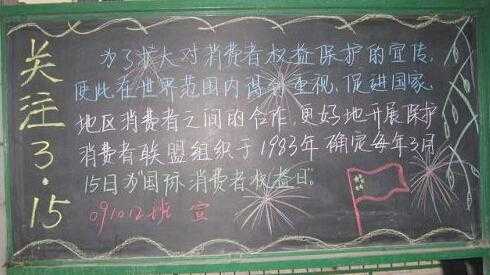 关注3·15
为了扩大对消费者权益保护的宣传,
使此在世界范围内得到重视,促进国家、
地区消费者之间的合作,更好地开展保护
消费者联盟组织于1983年确定每年3月
15日为"国际消费者权益日。
091012班 宣